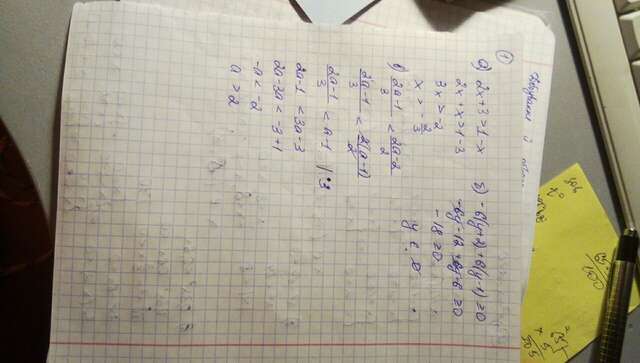 1
а) 2x+3 > 1-x
2x+x > 1-3
3x > -2
x > -2/3
в) (2a-1)/3 < (2a-2)/2
(2a-1)/3 < 2(a-1)/2
(2a-1)/3 < a-1 | ·3
2a-1 < 3a-3
2a-3a < -3+1
-a < -2
a > 2
3) -6(y+2)+6(y-1) ≥ 0
-6y-12+6y-6 ≥ 0
-18 ≥ 0
y ∈ ∅